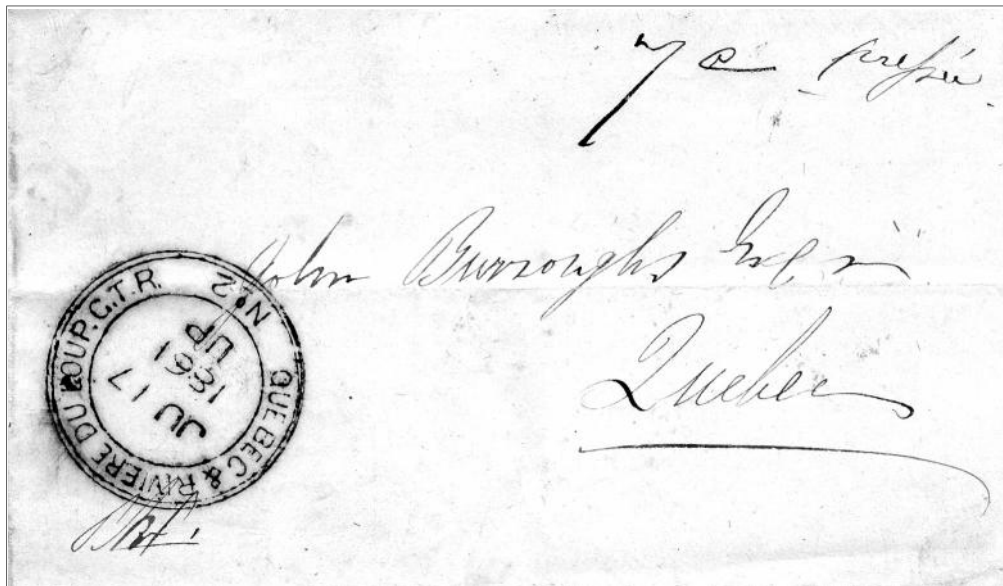 7c
John Burroughs Esqr
Quebec
QUEBEC & RIVIERE DU LOUP. G.T.R. No 2
UP
1861
JU 17